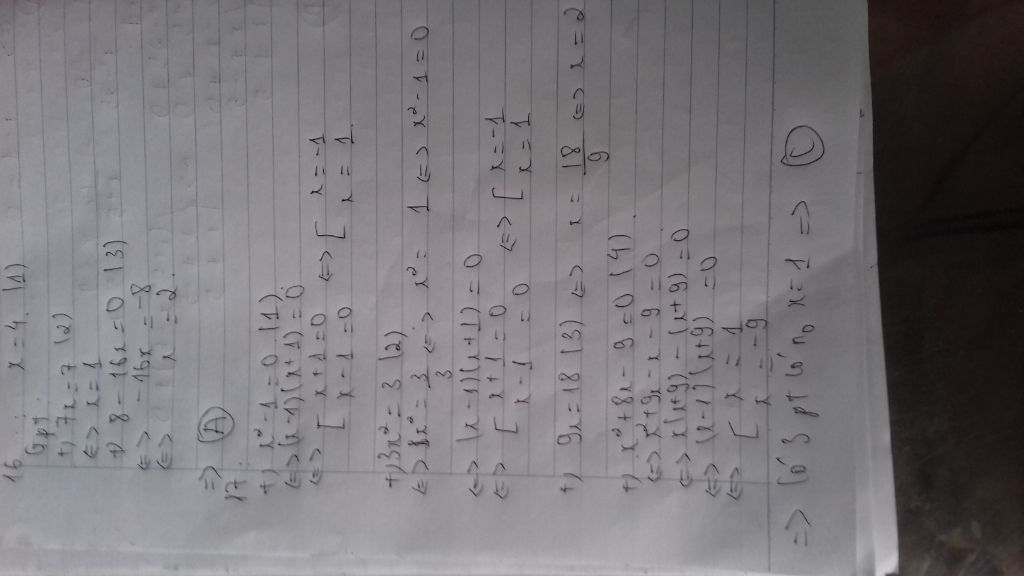 16 x = 4 (1)
Gpt
+) 7x = 7 (2)
<=> x = 1
+) 8 - 16x = 0 (3)
<=> - 16x = -8
<=> x = 2
=> A
17.
+) x² - 1 = 0 (1)
<=> (x - 1)(x + 1) = 0
<=> [ x + 1 = 0 <=> [ x = -1
x - 1 = 0 x = 1
+) 3x² = 3 (2)
<=> x² = 3/3 <=> x² = 1 <=> x² - 1 = 0
<=> (x - 1)(x + 1) = 0
<=> [ x + 1 = 0 <=> [ x = -1
x - 1 = 0 x = 1
+) 9x = 18 (3) <=> x = 18/9 <=> x = 2
+) x² + 8x - 9 = 0 (4)
<=> x² + 9x - x - 9 = 0
<=> x(x + 9) - (x + 9) = 0
<=> (x - 1)(x + 9) = 0
<=> [ x = 1
x = -9
=> Có 3 pt có no x = 1 => C